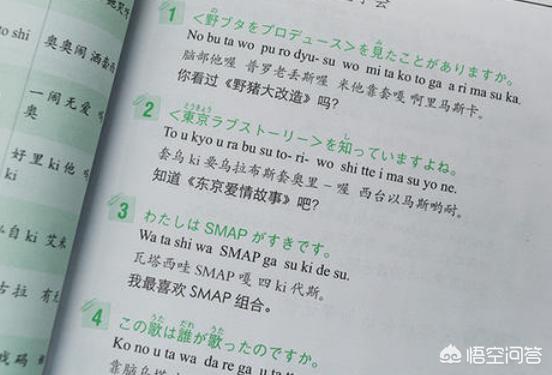 to shi
奥奥闹
一闹无爱
奥
好里 ki 他
ki
ki 艾米
1
<野ブタをプロデュース>を見たことがありますか。
No bu ta wo pu ro dyu- su wo mi ta ko to ga a ri ma su ka.
脑部他喔 普罗老丢斯喔 米他靠套嘎 啊里马斯卡。
你看过《野猪大改造》吗?
2
とうきょう
し
<東京ラブストーリー>を知っていますよね。
To u kyo u ra bu su to- ri- wo shi tte i ma su yo ne.
套乌 ki 要乌拉布斯套奥里-喔 西台以马斯哟耐。
知道《东京爱情故事》吧?
3
わたしは SMAP がすきです。
Wa ta shi wa SMAP ga su ki de su.
瓦塔西哇 SMAP 嘎 四 ki 代斯。
我最喜欢 SMAP 组合。
4
うた
だれ
うた
この歌は誰が歌ったのですか。
Ko no u ta wa da re ga u ta
悟空问答